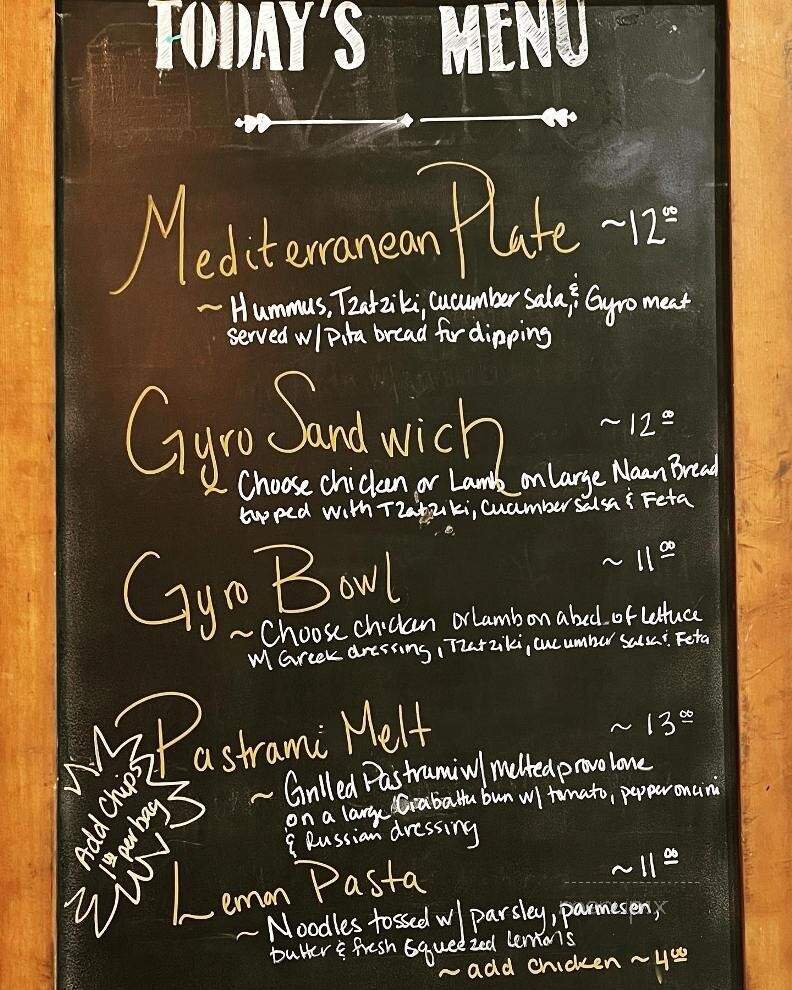 TODAY'S MENU
Mediterranean Plate ~12⁰⁰
~ Hummus, Tzatziki, cucumber sala, & Gyro meat
served w/ Pita bread for dipping
Gyro Sandwich ~12⁰⁰
~ Choose chicken or Lamb on large Naan Bread
topped with Tzatziki, Cucumber salsa & Feta
Gyro Bowl ~11⁰⁰
~ Choose chicken or Lamb on a bed of lettuce
w/ Greek dressing, Tzatziki, cucumber salsa & Feta
Pastrami Melt ~13⁰⁰
~ Grilled Pastrami w/ melted provolone
on a large Ciabatta bun w/ tomato, pepperoncini
& Russian dressing
Add Chips
per bag
Lemon Pasta ~11⁰⁰
~ Noodles tossed w/ parsley, parmesen,
butter & fresh squeezed lemons
~ add chicken ~4⁰⁰